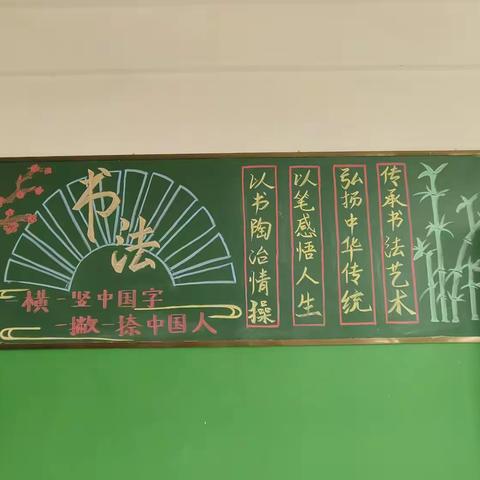 书法
一横一竖中国字
一撇一捺中国人
传承书法艺术
弘扬中华传统
以笔感悟人生
以书陶冶情操